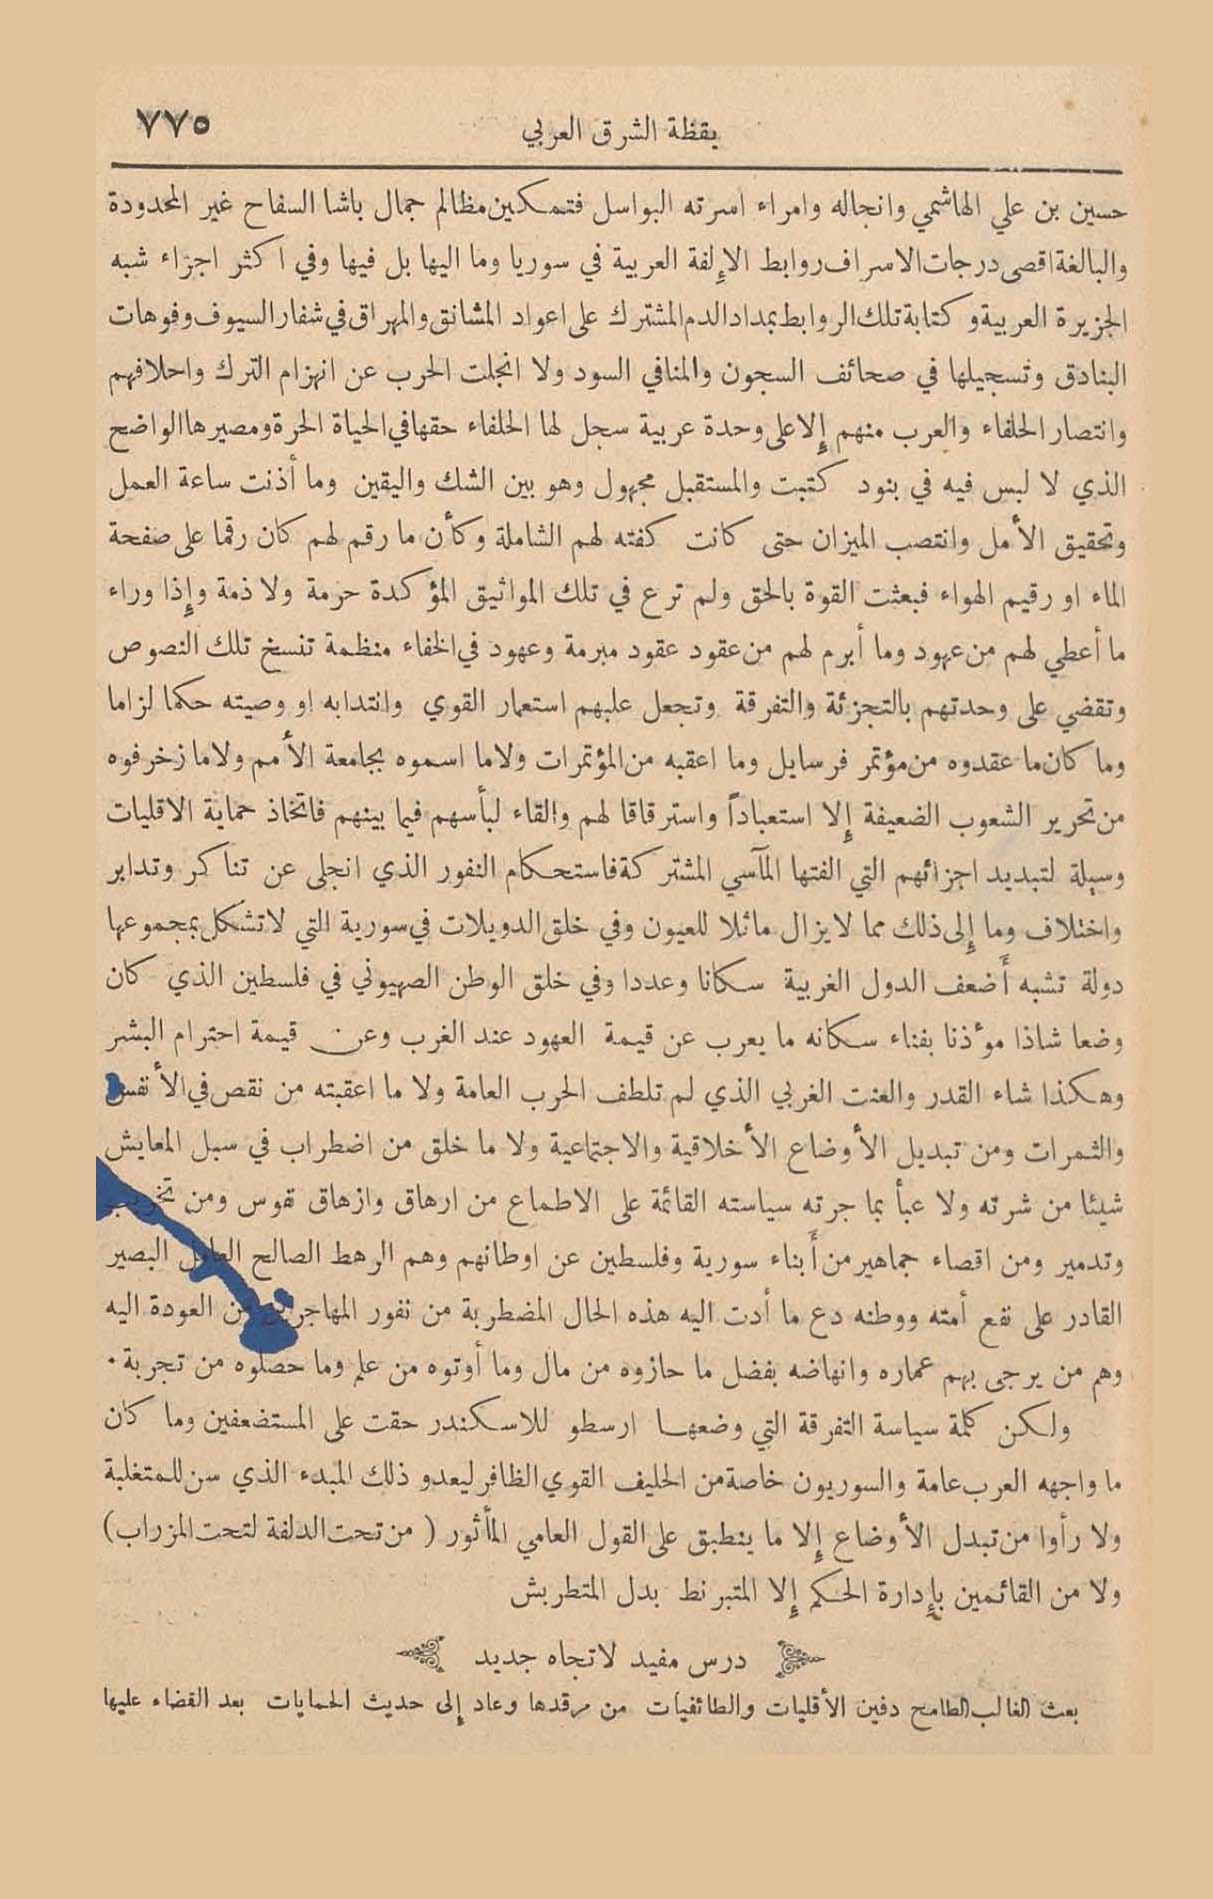 يقظة الشرق العربي
٧٧٥
حسين بن علي الهاشمي وانجاله وامراء اسرته البواسل فتمكين مظالم جمال باشا السفاح غير المحدودة
والبالغة اقصى درجات الاسراف روابط الإلفة العربية في سوريا وما اليها بل فيها وفي اكثر اجزاء شبه
الجزيرة العربية و كتابة تلك الروابط بمداد الدم المشترك على اعواد المشانق والمهراق في شفار السيوف وفوهات
البنادق وتسجيلها في صحائف السجون والمنافي السود ولا انجلت الحرب عن انهزام الترك واحلافهم
وانتصار الحلفاء والعرب منهم إلا على وحدة عربية سجل لها الحلفاء حقها في الحياة الحرة ومصيرها الواضح
الذي لا لبس فيه في بنود كتبت والمستقبل مجهول وهو بين الشك واليقين وما أذنت ساعة العمل
وتحقيق الأمل وانتصب الميزان حتى كانت كفته لهم الشاملة وكأن ما رقم لهم كان رقما على صفحة
الماء او رقيم الهواء فبعثت القوة بالحق ولم ترع في تلك المواثيق المؤكدة حرمة ولا ذمة وإذا وراء
ما أعطي لهم من عهود وما أبرم لهم من عقود عقود مبرمة وعهود في الخفاء منظمة تنسخ تلك النصوص
وتقضي على وحدتهم بالتجزئة والتفرقة وتجعل عليهم استعمار القوي وانتدابه او وصيته حكما لزاما
وما كان ما عقدوه من مؤتمر فرسايل وما اعقبه من المؤتمرات ولا ما اسموه بجامعة الأمم ولا ما زخرفوه
من تحرير الشعوب الضعيفة إلا استعباداً واسترقاقا لهم والقاء لبأسهم فيما بينهم فاتخاذ حماية الاقليات
وسيلة لتبديد اجزائهم التي الفتها المآسي المشتركة فاستحكام النفور الذي انجلى عن تناكر وتدابر
واختلاف وما إلى ذلك مما لا يزال ماثلا للعيون وفي خلق الدويلات في سورية التي لا تشكل بمجموعها
دولة تشبه أضعف الدول الغربية سكانا وعددا وفي خلق الوطن الصهيوني في فلسطين الذي كان
وضعا شاذا موذنا بفناء سكانه ما يعرب عن قيمة العهود عند الغرب وعن قيمة احترام البشر
وهكذا شاء القدر والعنت الغربي الذي لم تلطف الحرب العامة ولا ما اعقبته من نقص في الأنفس
والثمرات ومن تبديل الأوضاع الأخلاقية والاجتماعية ولا ما خلق من اضطراب في سبل المعايش
شيئا من شرته ولا عبأ بما جرته سياسته القائمة على الاطماع من ارهاق وازهاق نفوس ومن تخريب
وتدمير ومن اقصاء جماهير من أبناء سورية وفلسطين عن اوطانهم وهم الرهط الصالح العامل البصير
القادر على نفع أمته ووطنه دع ما أدت اليه هذه الحال المضطربة من نفور المهاجرين من العودة اليه
وهم من يرجى بهم عماره وانهاضه بفضل ما حازوه من مال وما أوتوه من علم وما حصلوه من تجربة ·
ولكن كلمة سياسة التفرقة التي وضعها ارسطو للاسكندر حقت على المستضعفين وما كان
ما واجهه العرب عامة والسوريون خاصة من الحليف القوي الظافر ليعدو ذلك المبدء الذي سن للمتغلبة
ولا رأوا من تبدل الأوضاع إلا ما ينطبق على القول العامي المأثور ( من تحت الدلفة لتحت المزراب )
ولا من القائمين بإدارة الحكم إلا المتبرنط بدل المتطربش
درس مفيد لاتجاه جديد
بعث الغالب الطامح دفين الأقليات والطائفيات من مرقدها وعاد إلى حديث الحمايات بعد القضاء عليها